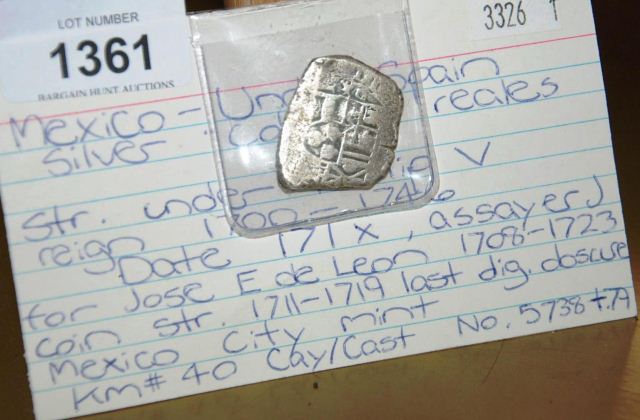 LOT NUMBER
1361
BARGAIN HUNT AUCTIONS
3326 1
Mexico - Spain
Silver reales
Str. under V
reign 1700-1746
Date 171x, assayer J
for Jose E de Leon 1708-1723
coin str. 1711-1719 last dig. obscure
Mexico City mint
KM# 40 Cay/Cast No. 5738